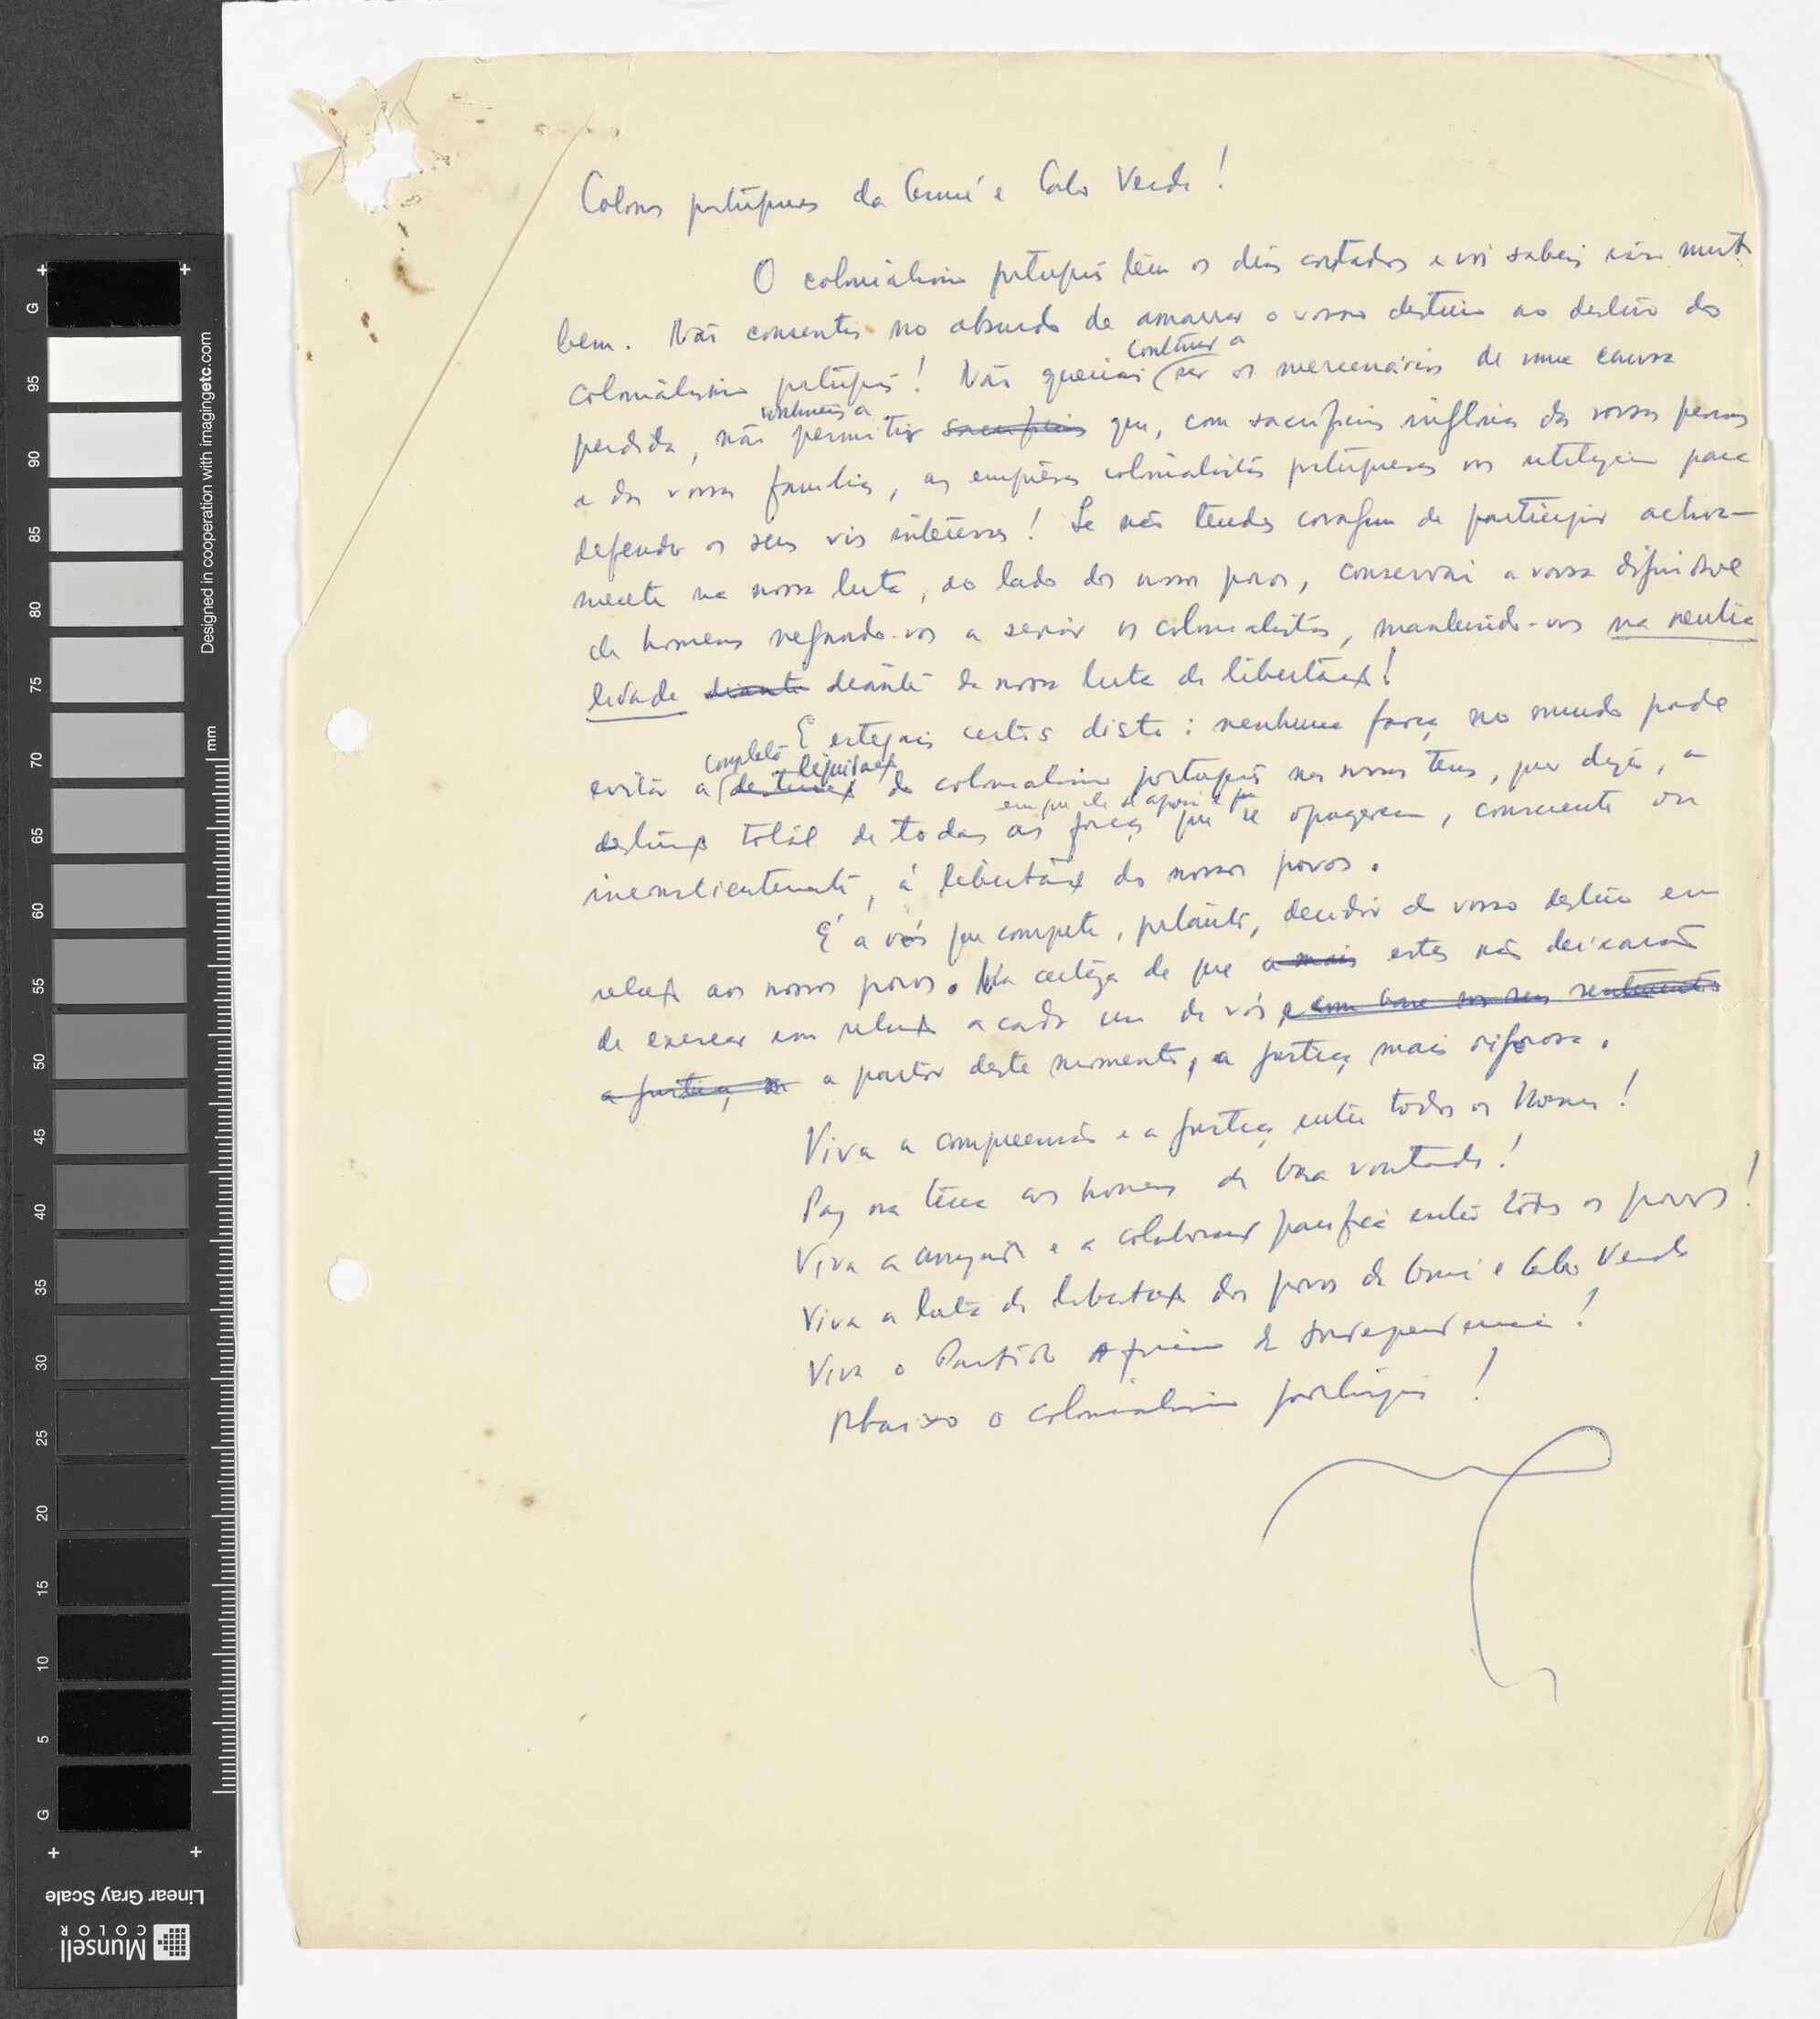 Colonos portugueses da Guiné e Cabo Verde!
O colonialismo português tem os dias contados e vós sabeis isso muito
bem. Não consentis no absurdo de amarrar o vosso destino ao destino do
continuar a
colonialismo português! Não queirais ser os mercenários de uma causa
continueis a
perdida, não permitir sacrifícios que, com sacrifícios inglórios das vossas pessoas
e das vossas famílias, as empresas colonialistas portuguesas vos utilizem para
defender os seus vis interesses! Se não tendes coragem de participar activa-
mente na nossa luta, ao lado dos nossos povos, conservai a vossa dignidade
de homens negando-vos a servir os colonialistas, mantendo-vos na neutra
lidade diante diante da nossa luta de libertação!
E estejais certos disto: nenhuma força no mundo pode
completa liquidação
evitar a destruição do colonialismo português nas nossas terras, quer dizer, a
destruição total de todas as forças que se opuserem, consciente ou
inconscientemente, à libertação dos nossos povos.
É a vós que compete, portanto, decidir do vosso destino em
relação aos nossos povos. Na certeza de que a mais estes não deixarão
de exercer em relação a cada um de vós, com base nos seus sentimentos
a justiça, a partir deste momento, a justiça mais rigorosa.
Viva a compreensão e a justiça entre todos os Homens!
Paz na terra aos homens de boa vontade!
Viva a amizade e a colaboração pacífica entre todos os povos!
Viva a luta de libertação dos povos da Guiné e Cabo Verde
Viva o Partido Africano da Independência!
Abaixo o colonialismo português!
Designed in cooperation with imagingetc.com
mm
G 95 90 85 80 75 70 65 60 55 50 45 40 35 30 25 20 15 10 5 G
Linear Gray Scale
Munsell
COLOR